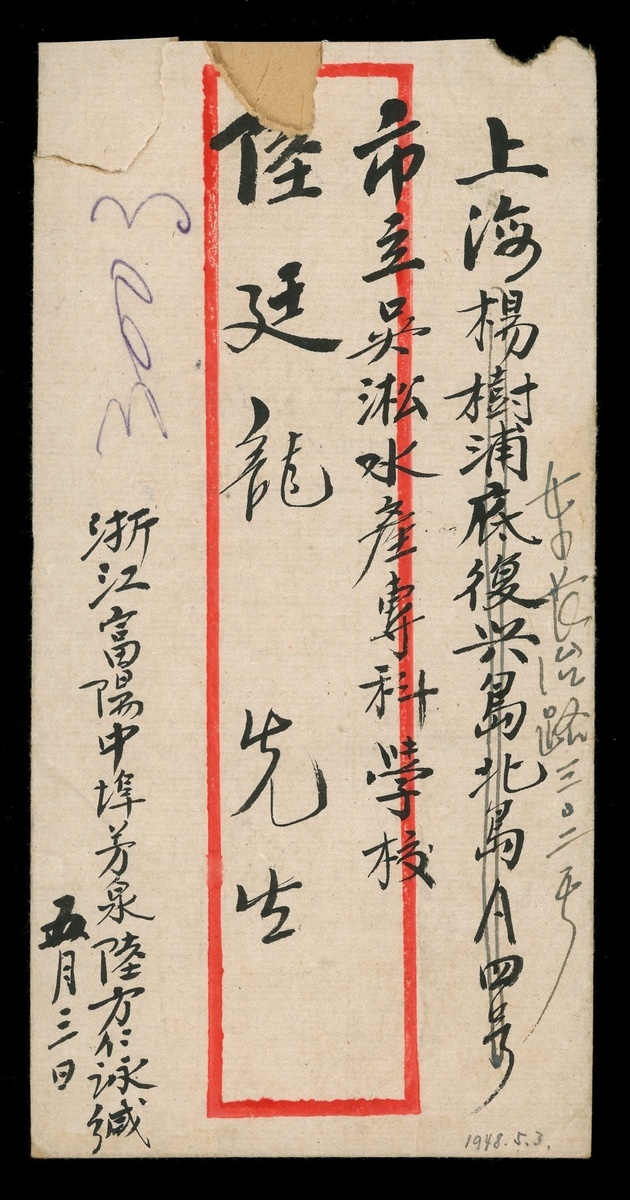 東長治路三〇二号
上海楊樹浦底復兴島北島A四号
市立吳淞水產專科學校
陸廷龍 先生
3003
浙江富陽中埠芳泉陸方仁詠緘
五月三日
1948.5.3.